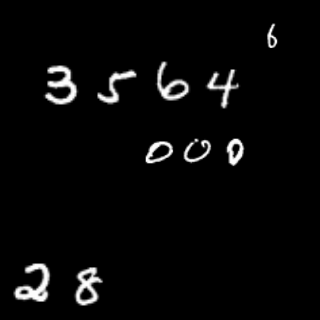 6
3564
000
28